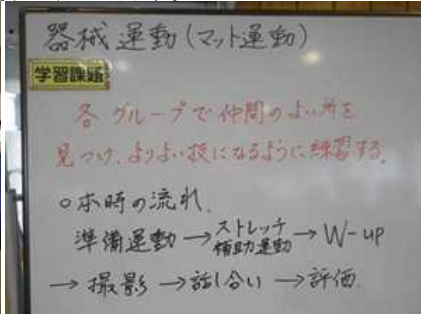 器械運動(マット運動)
学習課題
各グループで仲間のよい所を
見つけ、よりよい技になるように練習する。
○本時の流れ.
準備運動→ストレッチ補助運動→W-up
→撮影→話し合い→評価.